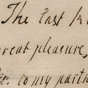 The last
great pleasure,
to my partn